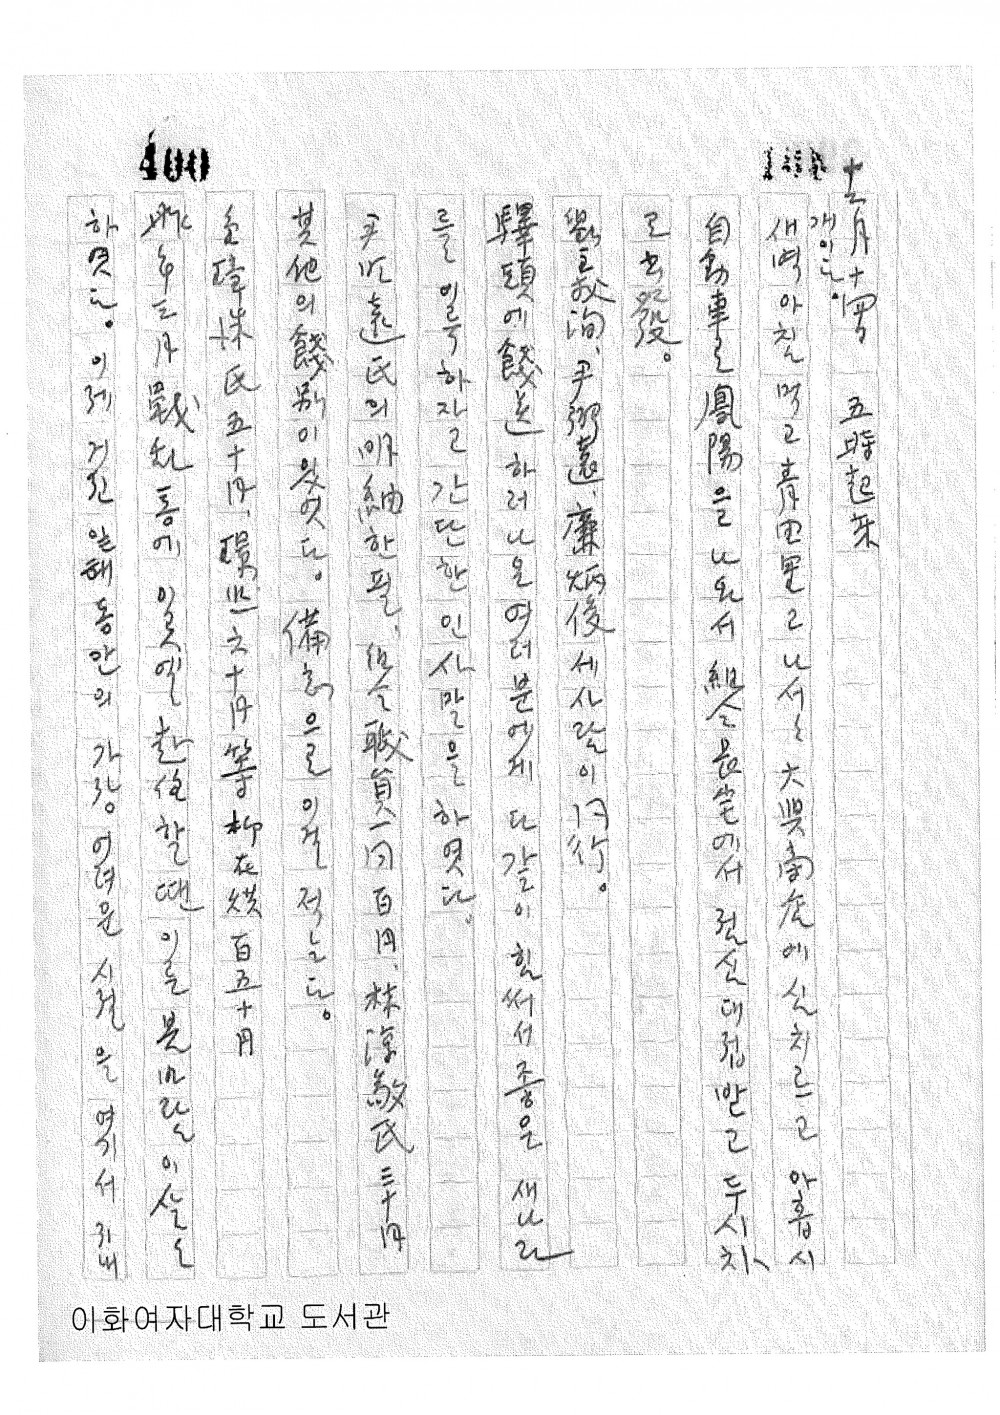 400
十二月十四일 五時起床
개인다。
새벽아침 먹고 靑田里로 나서는 大興南虎에 실치르고 아홉시
自動車로 鳳陽을 나와서 組合長宅에서 점심대접받고 두시차
로 出發。
尹弼遠、廉炳俊 세사람이 同行。
驛頭에 餞送하러나온 여러분에게 다같이 힘써서 좋은 새나라
를 일육하자고 간단한 인사말을 하엿다。
尹 遠氏의 明紬한필、組合職員一同百円、林淳敬氏三十円
其他의 餞別이 있엇다。備忘으로 이걸 적는다。
氏五十円、 六十円等 柳在 百五十円
昨年三月 戰亂통에 이곳엘 赴任할땐 이를 봇바람이 살는
하엿다。이제 거진 일해동안의 가장 어려운 시절을 여기서 지내
이화여자대학교 도서관